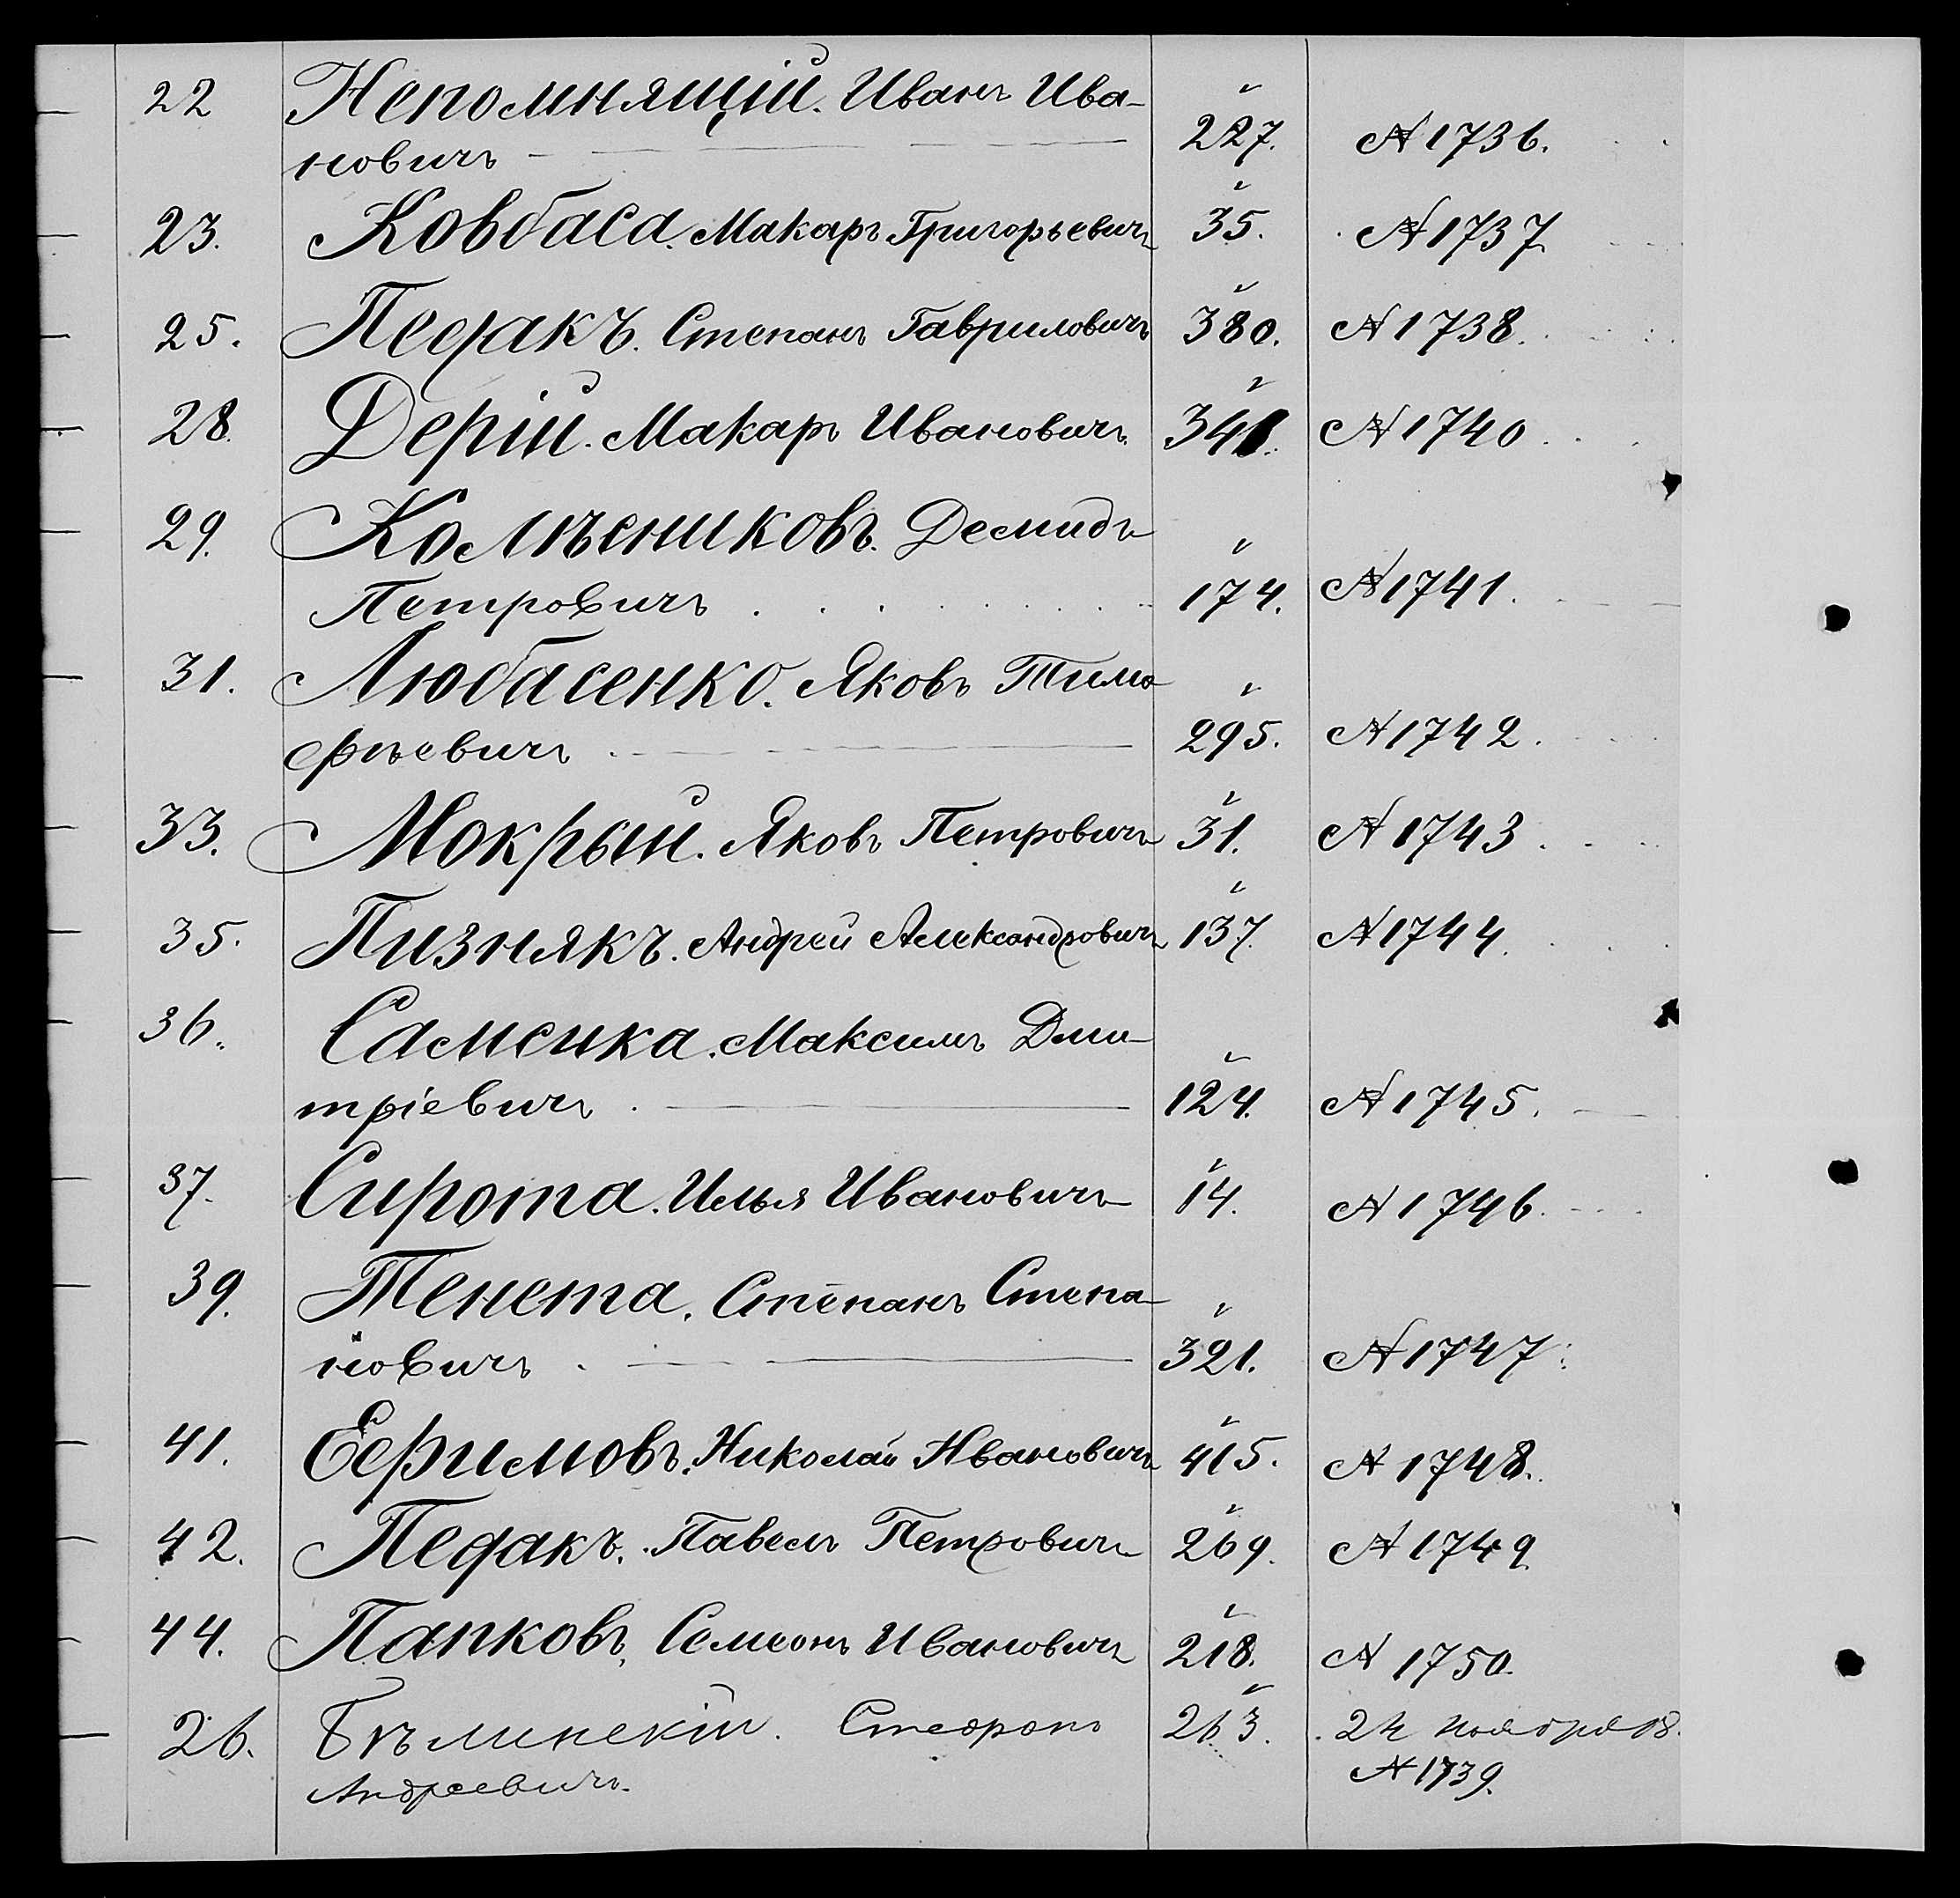 22 Непомнящій. Иванъ Ива-
новичъ 227. № 1736.
23. Ковбаса. Макаръ Григорьевичъ 35. № 1737
25. Педакъ. Степанъ Гавриловичъ 380. № 1738.
28. Дерій. Макаръ Ивановичъ. 341. № 1740
29. Колѣсниковъ. Демидъ
Петровичъ 174. № 1741.
31. Любасенко. Яковъ Тимо
фѣевичъ 295. № 1742.
33. Мокрый. Яковъ Петровичъ 31. № 1743
35. Пизнякъ. Андрей Александровичъ 137. № 1744.
36. Саменка. Максимъ Дми-
тріевичъ 124. № 1745.
37. Сирота. Илья Ивановичъ 14. № 1746.
39. Тенета. Степанъ Степа-
новичъ 321. № 1747.
41. Ефимовъ. Николай Ивановичъ 415. № 1748.
42. Педакъ. Павелъ Петровичъ 269. № 1749
44. Папковъ. Семеонъ Ивановичъ 218. № 1750.
26. Бѣлинскій. 263. ноября 18.
Андреевичъ. № 1739.